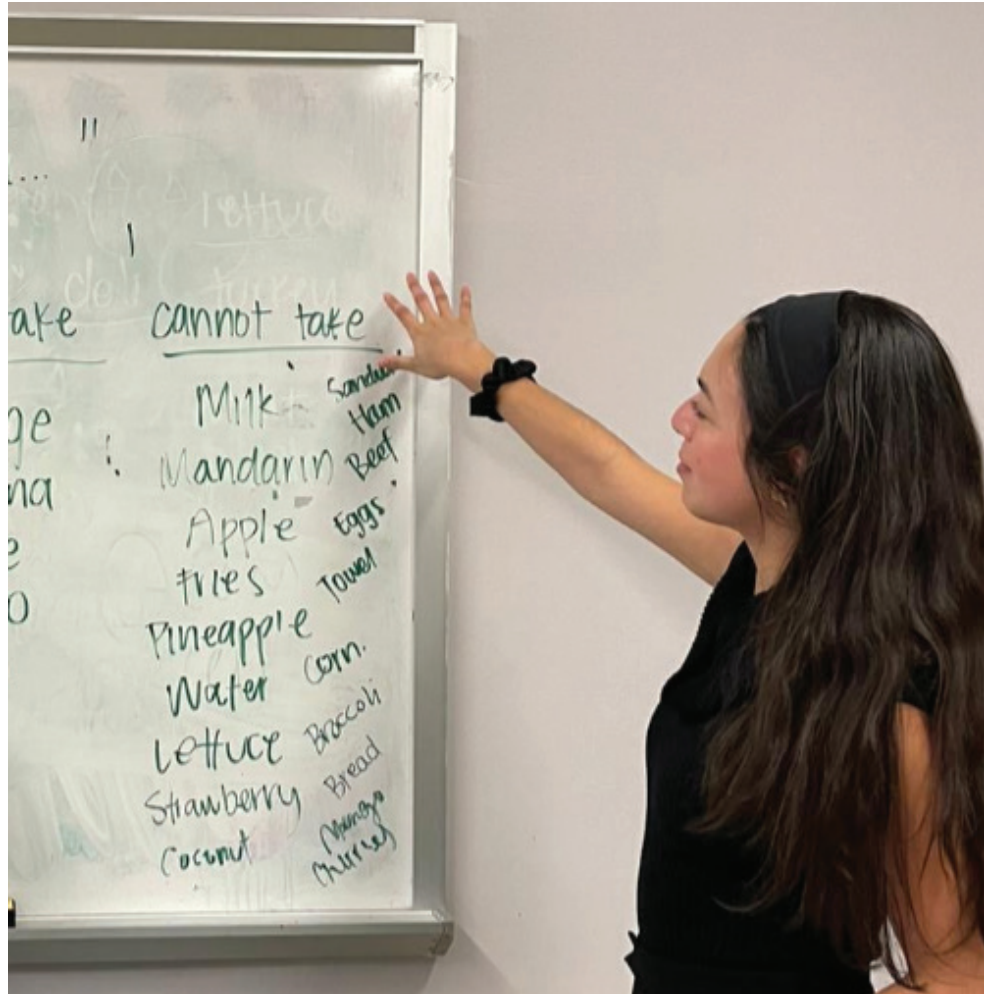 lettuce
deli turkey
ake
cannot take
ge
na
e
o
Milk
Mandarin
Apple
Fries
Pineapple
Water
Lettuce
Strawberry
Coconut
Ham
Beef
Eggs
Towel
Corn.
Broccoli
Bread
Mango